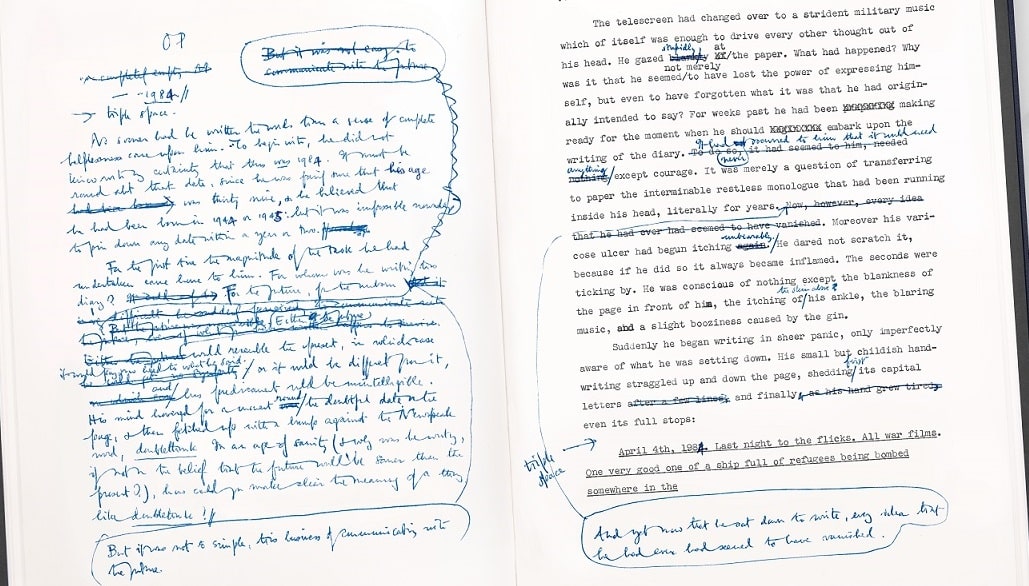 OP
But it was not easy to
communicate with the future
a completely empty
— 1984 //
→ triple space.
No sooner had he written the words than a sense of complete
helplessness came upon him. To begin with, he did not
know with any certainty that this was 1984. It must be
round abt that date, since he was fairly sure that his age
had been born was thirty nine, & he believed that
he had been born in 1944 or 1945: but it was impossible nowadays
to pin down any date within a year or two.
For the first time the magnitude of the task he had
undertaken came home to him. For whom was he writing this
diary? For the future, for the unborn
difficult he suddenly perceived to communicate with
the future, Either the future
Either would resemble the present, in which case
it would not listen to what he said: / or it would be different from it,
and / his predicament wld be meaningless.
His mind hovered for a moment round / the doubtful date on the
page, & then fetched up with a bump against the Newspeak
word, doublethink. In an age of sanity (& why was he writing,
if not in the belief that the future will be saner than the
present?), how could you make clear the meaning of a thing
like doublethink? //
But it was not so simple, this business of communicating with
the future.
The telescreen had changed over to a strident military music
which of itself was enough to drive every other thought out of
stupidly at
his head. He gazed blankly XX/the paper. What had happened? Why
not merely
was it that he seemed/to have lost the power of expressing him-
self, but even to have forgotten what it was that he had origin-
ally intended to say? For weeks past he had been XXXXXXXX making
ready for the moment when he should XXXXXXXX embark upon the
It had never occurred to him that it would need
writing of the diary. To do so, it had seemed to him, needed
anything
nothing/except courage. It was merely a question of transferring
to paper the interminable restless monologue that had been running
inside his head, literally for years. Now, however, every idea
that he had ever had seemed to have vanished. Moreover his vari-
unbearably
cose ulcer had begun itching again./He dared not scratch it,
because if he did so it always became inflamed. The seconds were
ticking by. He was conscious of nothing except the blankness of
the skin above
the page in front of him, the itching of/his ankle, the blaring
music, and a slight booziness caused by the gin.
Suddenly he began writing in sheer panic, only imperfectly
aware of what he was setting down. His small but childish hand-
first
writing straggled up and down the page, shedding/its capital
letters after a few lines, and finally, as his hand grew tired,
even its full stops:
→ triple space
April 4th, 1984. Last night to the flicks. All war films.
One very good one of a ship full of refugees being bombed
somewhere in the
And yet now that he sat down to write, every idea that
he had ever had seemed to have vanished.